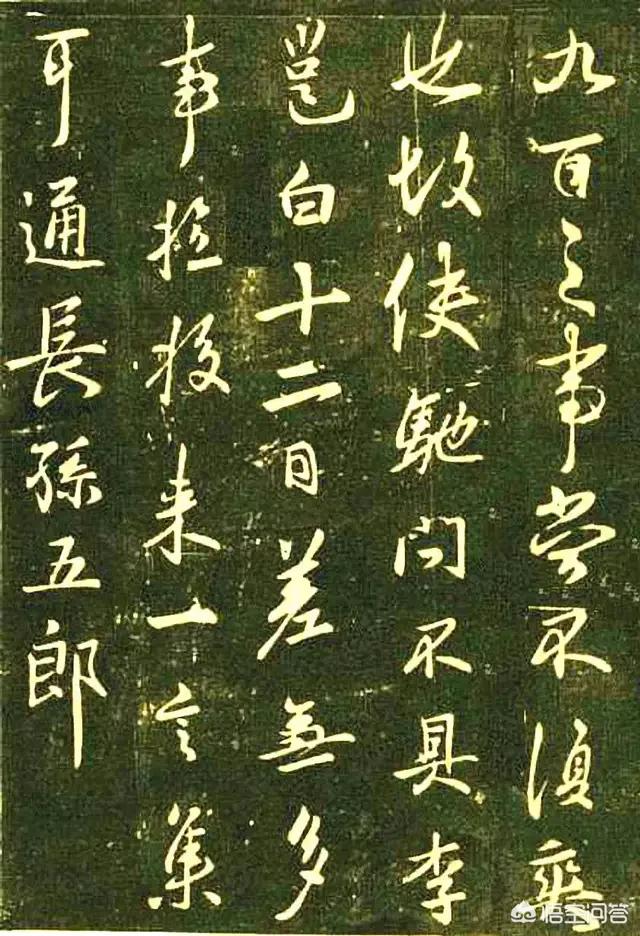 九百之事當不須乖
也故使馳問不具李
邕白十二日差無多
事檢校来一言集
耳通長孫五郎
悟空问答